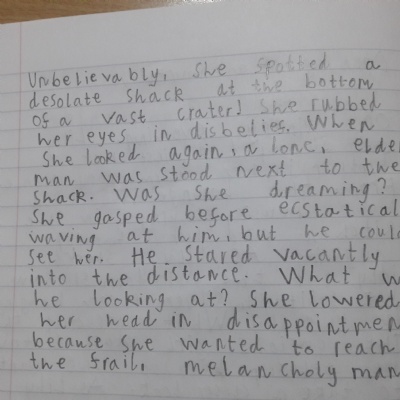 Unbelievably, she spotted a
desolate shack at the bottom
of a vast crater! She rubbed
her eyes in disbelief. When
She looked again, a lone, elde
man was stood next to the
shack. Was she dreaming?
She gasped before ecstatical
waving at him, but he could
see her. He stared vacantly
into the distance. What w
he looking at? She lowered
her head in disappointmen
because she wanted to reach
the frail, melancholy man